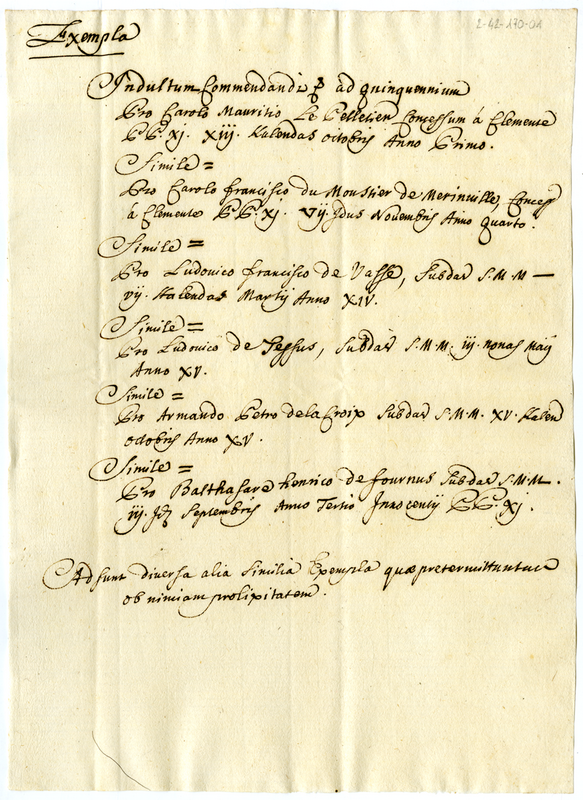 2-42-170-01
Exempla
Indultum Commendandi ad quinquennium
Pro Carolo Mauritio Le Pelletier Concessum á Clemente
PP. XI. XIIJ. Kalendas Octobris Anno Primo.
Simile =
Pro Carolo francisco du Moustier de Merinville, Concess
á Clemente PP. XI. VIJ. Idus Novembris Anno quarto.
Simile =
Pro Ludovico francisco de Vasse, Subdat S. M. M —
vij. Kalendas Martij Anno XIV.
Simile =
Pro Ludovico de Sessus, Subdat S. M. M. iij. nonas Maij
Anno XV.
Simile =
Pro Armando Petro de la Croix Subdat S. M. M. XV. Kalend
octobris Anno XV.
Simile =
Pro Balthasare henrico de fournus Subdat S. M. M.
iij. Septembris Anno Tertio Innocentij PP. XI.
Adsunt diversa alia Similia Exempla quæ pretermittuntur
ob nimiam prolixitatem.